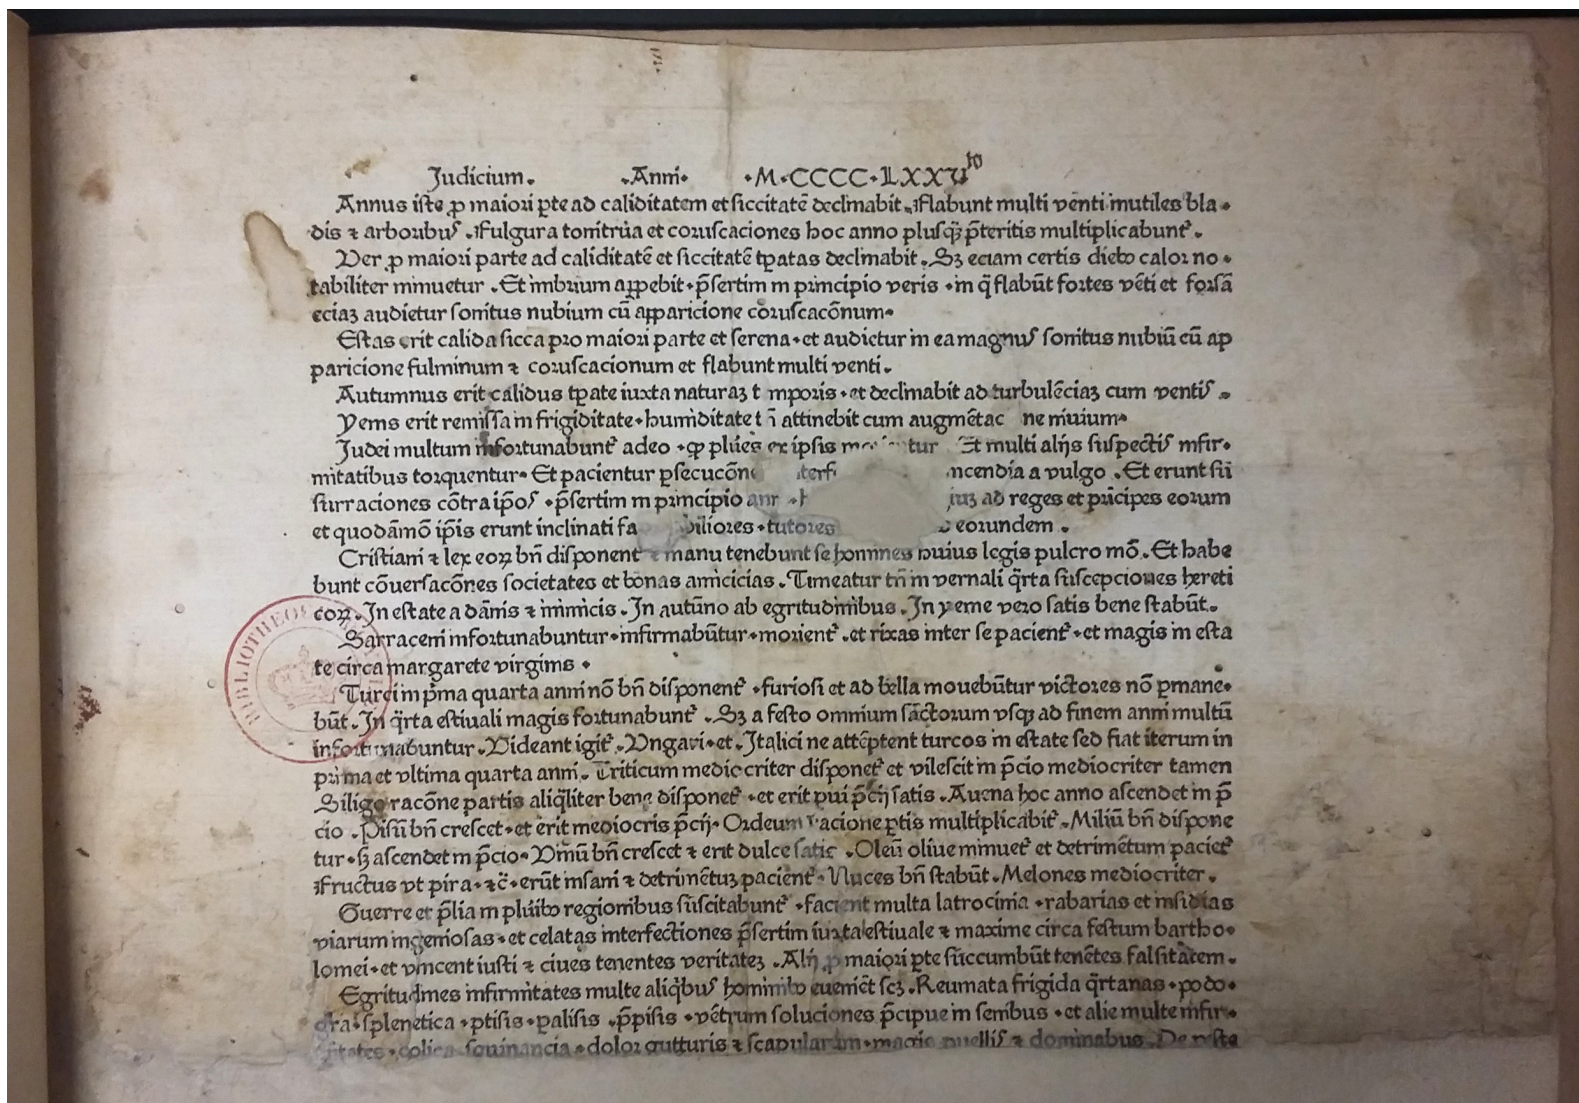 Judicium. .Anni. .M.CCCC.LXXVto
Annus iste ꝓ maiori ꝑte ad caliditatem et siccitatē declinabit. Flabunt multi venti inutiles bla-
dis ⁊ arboribus. Fulgura tonitrua et coruscaciones hoc anno plusq̄ p̄teritis multiplicabunt̉.
Ver ꝓ maiori parte ad caliditatē et siccitatē tꝑatas declinabit. Sꝫ eciam certis diebꝰ calor no-
tabiliter minuetur. Et imbrium p̄sertim in principio veris. in q̄ flabūt fortes vēti et forsā
eciaꝫ audietur sonitus nubium cū apparicione coruscacōnum.
Estas erit calida sicca pro maiori parte et serena. et audietur in ea magnus sonitus nubiū cū ap
paricione fulminum ⁊ coruscacionum et flabunt multi venti.
Autumnus erit calidus tꝑate iuxta naturaꝫ t mporis. et declinabit ad turbulēciaꝫ cum ventis.
Yems erit remissa in frigiditate. humiditate attinebit cum augmētac ne niuium.
Judei multum infortunabunt̉ adeo. ꝙ plures ex ipsis tur Et multi alijs suspectis infir-
mitatibus torquentur. Et pacientur ꝑsecucōne terf ncendia a vulgo. Et erunt su
surraciones cōtra ip̄os. p̄sertim in principio ad reges et principes eorum
et quodāmō ip̄is erunt inclinati fa biliores. tutores eorundem.
Cristiani ⁊ lex eoꝝ bn̄ disponent̉ ⁊ manu tenebunt se homines huius legis pulcro mō. Et habe
bunt cōuersacōnes societates et bonas amicicias. Timeatur tn̄ in vernali q̄rta suscepciones hereti
coꝝ. In estate a dānis ⁊ inimicis. In autūno ab egritudinibus. In yeme vero satis bene stabūt.
Sarraceni infortunabuntur. infirmabūtur. morient̉. et rixas inter se pacient̉. et magis in esta
te circa margarete virginis.
Turci in p̄ma quarta anni nō bn̄ disponent̉. furiosi et ad bella mouebūtur victores nō ꝑmane-
būt. In q̄rta estiuali magis fortunabunt̉. Sꝫ a festo omnium sāctorum vsqꝫ ad finem anni multū
infortunabuntur. Videant igit̉. Vngari. et. Jtalici ne attēptent turcos in estate sed fiat iterum in
prima et vltima quarta anni. Triticum mediocriter disponet̉ et vilescit in p̄cio mediocriter tamen
Siligo racōne partis aliq̄liter bene disponet̉. et erit pui p̄cij satis. Auena hoc anno ascendet in p̄
cio. Pisū bn̄ crescet. et erit mediocris p̄cij. Ordeum racione ꝑtis multiplicabit̉. Miliū bn̄ dispone
tur. sꝫ ascendet in p̄cio. Vinū bn̄ crescet ⁊ erit dulce satis. Oleū oliue minuet̉ et detrimētum paciet̉
Fructus vt pira. ⁊c̄. erūt insani ⁊ detrimētuꝫ pacient̉. Nuces bn̄ stabūt. Melones mediocriter.
Guerre et p̄lia in pluribꝰ regionibus suscitabunt̉. facient multa latrocinia. rabarias et insidias
viarum ingeniosas. et celatas interfectiones p̄sertim iuxta estiuale ⁊ maxime circa festum bartho-
lomei. et vincent iusti ⁊ ciues tenentes veritateꝫ. Alij ꝓ maiori ꝑte succumbūt tenētes falsitatem.
Egritudines infirmitates multe aliq̄bus hominibꝰ eueniēt scꝫ. Reumata frigida q̄rtanas. podo-
gra. splenetica. ptisis. palisis. p̄pisis. vētrum soluciones p̄cipue in senibus. et alie multe infir-
colica dolor gutturis ⁊ scapularum. magis puellis ⁊ dominabus. De peste